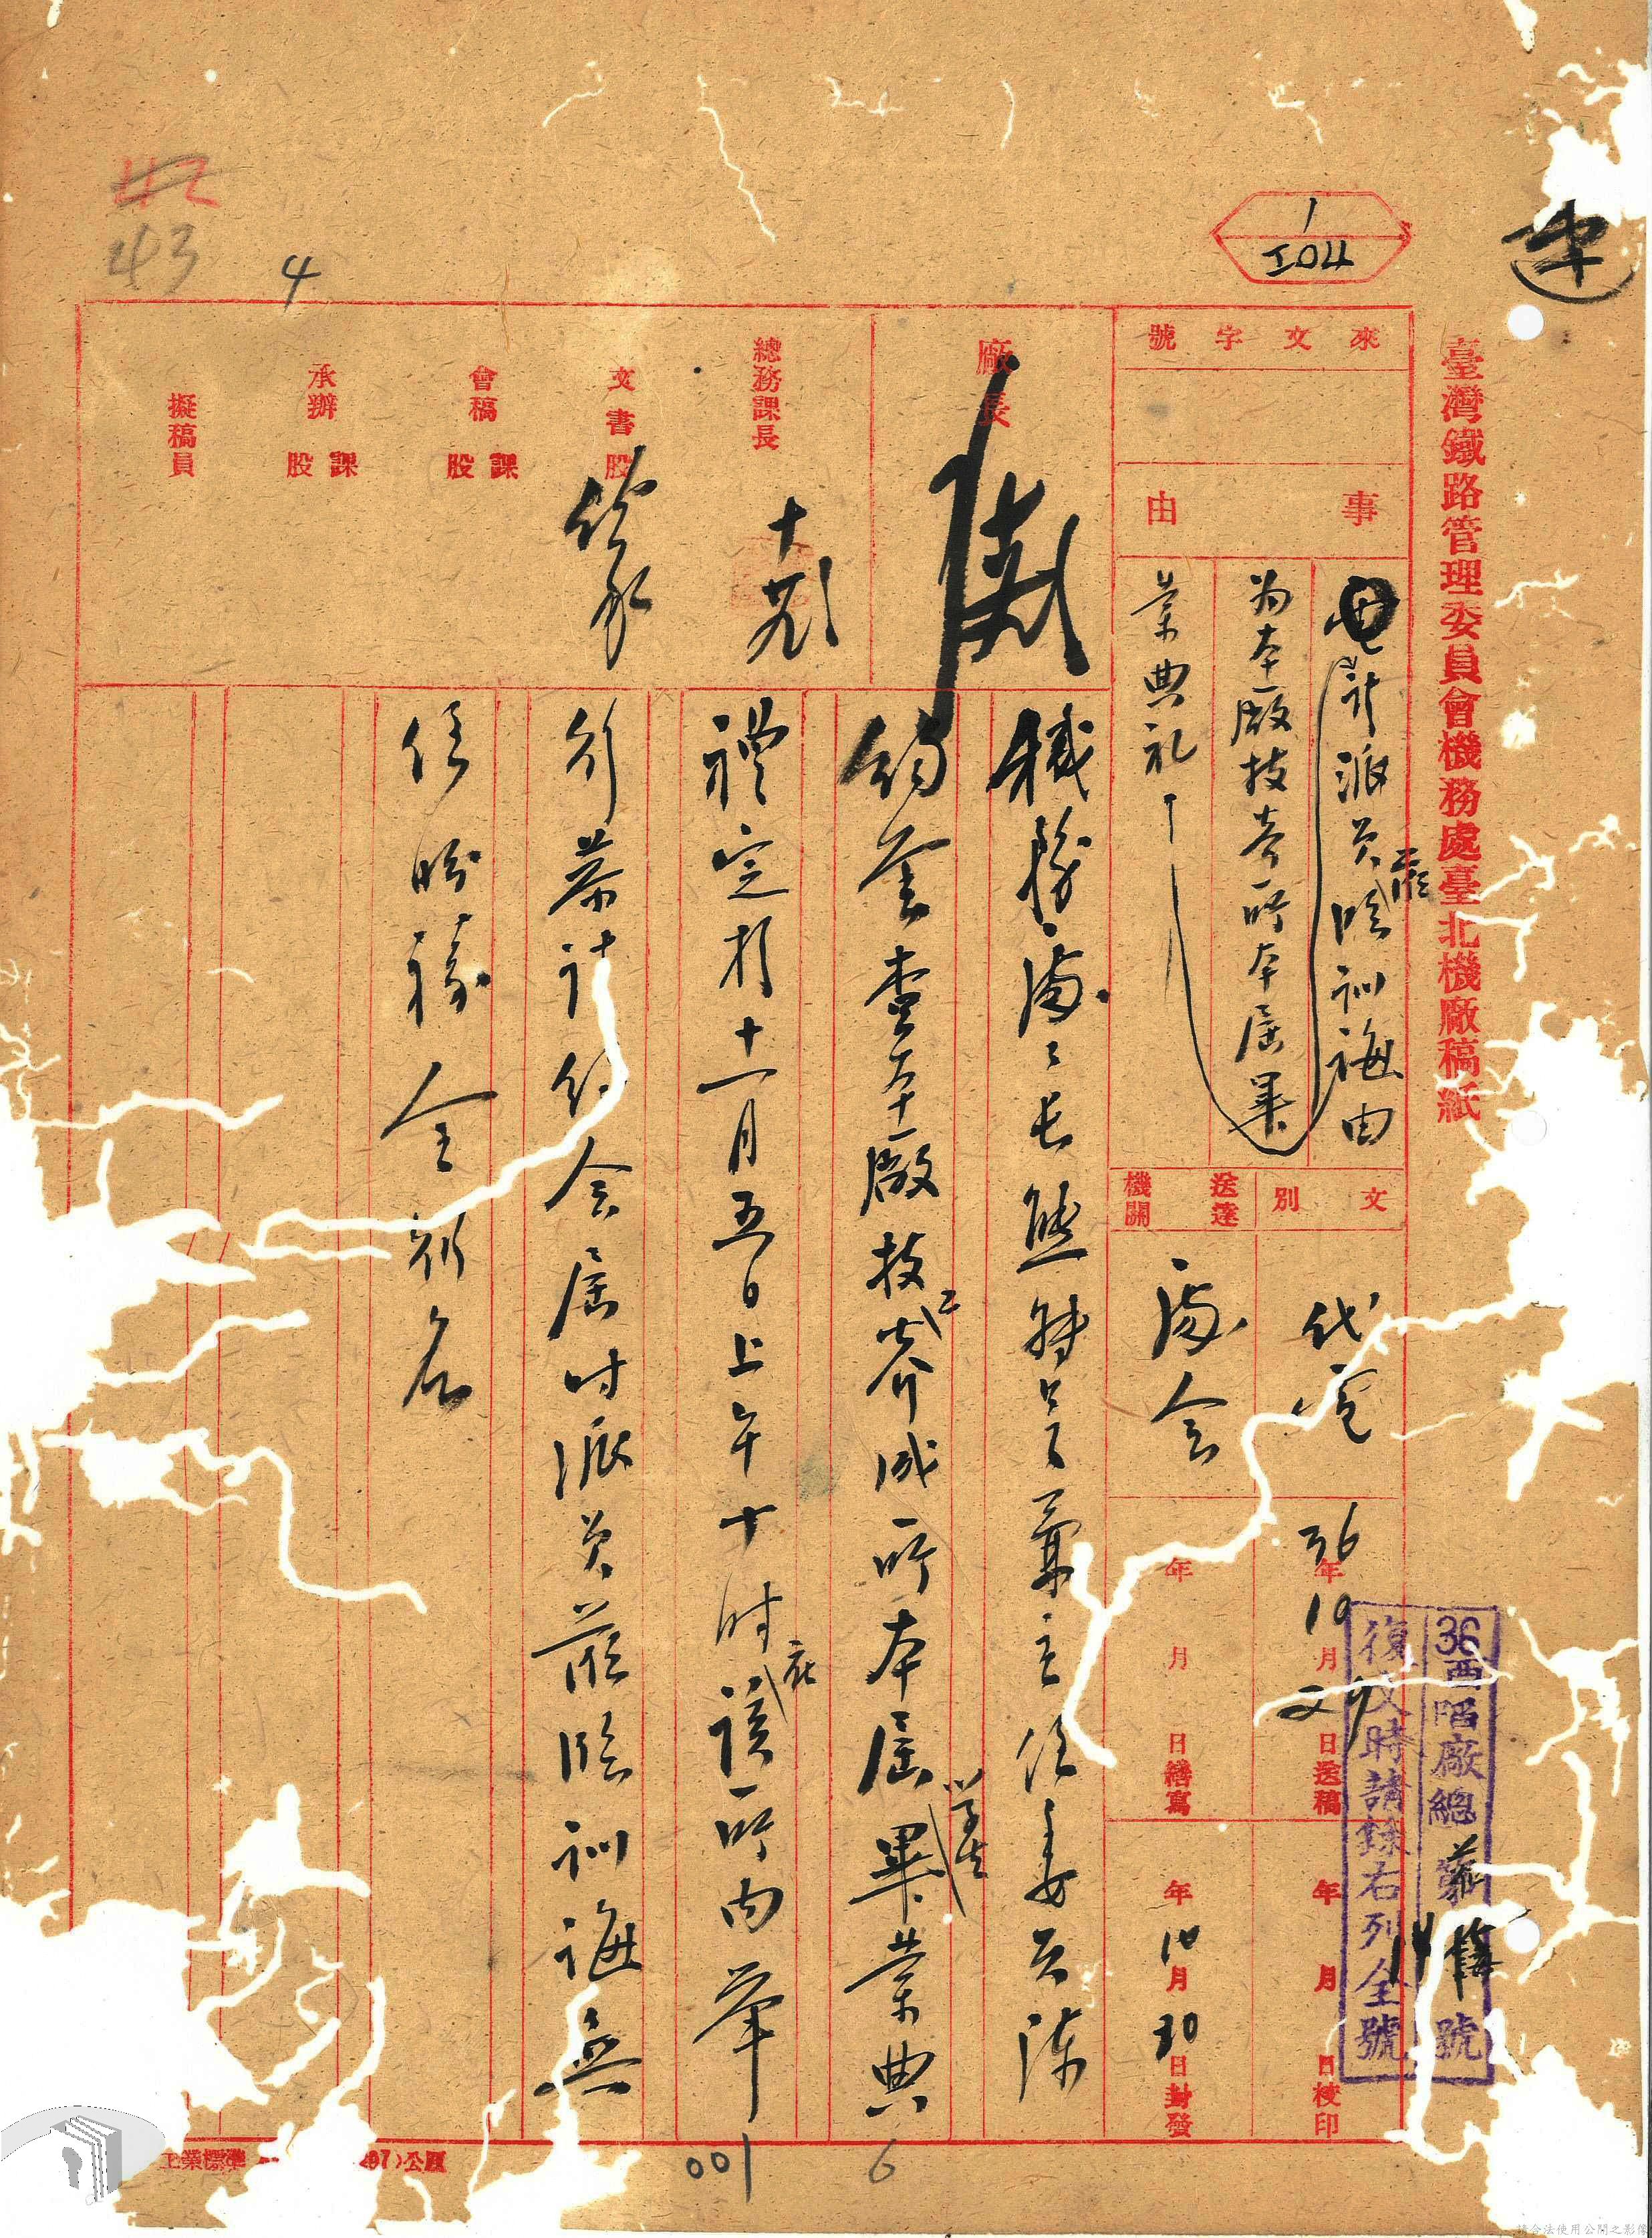 速
1
I04
42
43
4
臺灣鐵路管理委員會機務處臺北機廠稿紙
36酉陷廠總 第 號
復文時請錄右列全號
來文字號
事由
電請派員蒞臨訓誨由
為本廠技養所本屆畢
業典礼
文別
代電
送達機關
處會
36年10月29日送稿
年月日繕寫
年月日校印
年10月30日封發
廠長
總務課長
文書股
會稿課股
承辦課股
擬稿員
機務處處長熊特呈彙主任委員陳
鈞鑒查本廠技工養成所本屆學生畢業典
禮定於十一月五日上午十時在該所內舉
行恭請鈞會屆時派員蒞臨訓誨無
任盼禱全銜名
001
6
工業標準
公厘